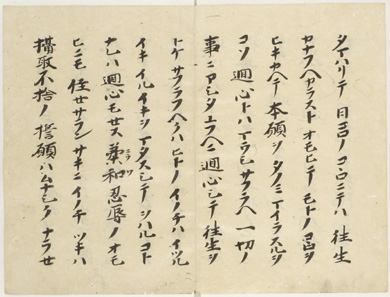 タマハリテ 日コロノコヽロニテハ 往生
カナフヘカラスト オモヒテ モトノコヽロヲ
ヒキカヘテ 本願ヲ タノミマイラスルヲ
コソ 廻心トハマウシサフラヘ 一切ノ
事ニ アシタユフヘニ 廻心シテ 往生ヲ
トケサフラフヘクハ ヒトノイノチハ イツル
イキ イルイキヲ マタスシテ ヲハルコト
ナレハ 廻心モセス 柔和忍辱ノオモ
ヒニモ 住セサラン サキニ イノチ ツキハ
攝取不捨ノ 誓願ハ ムナシク ナラセ